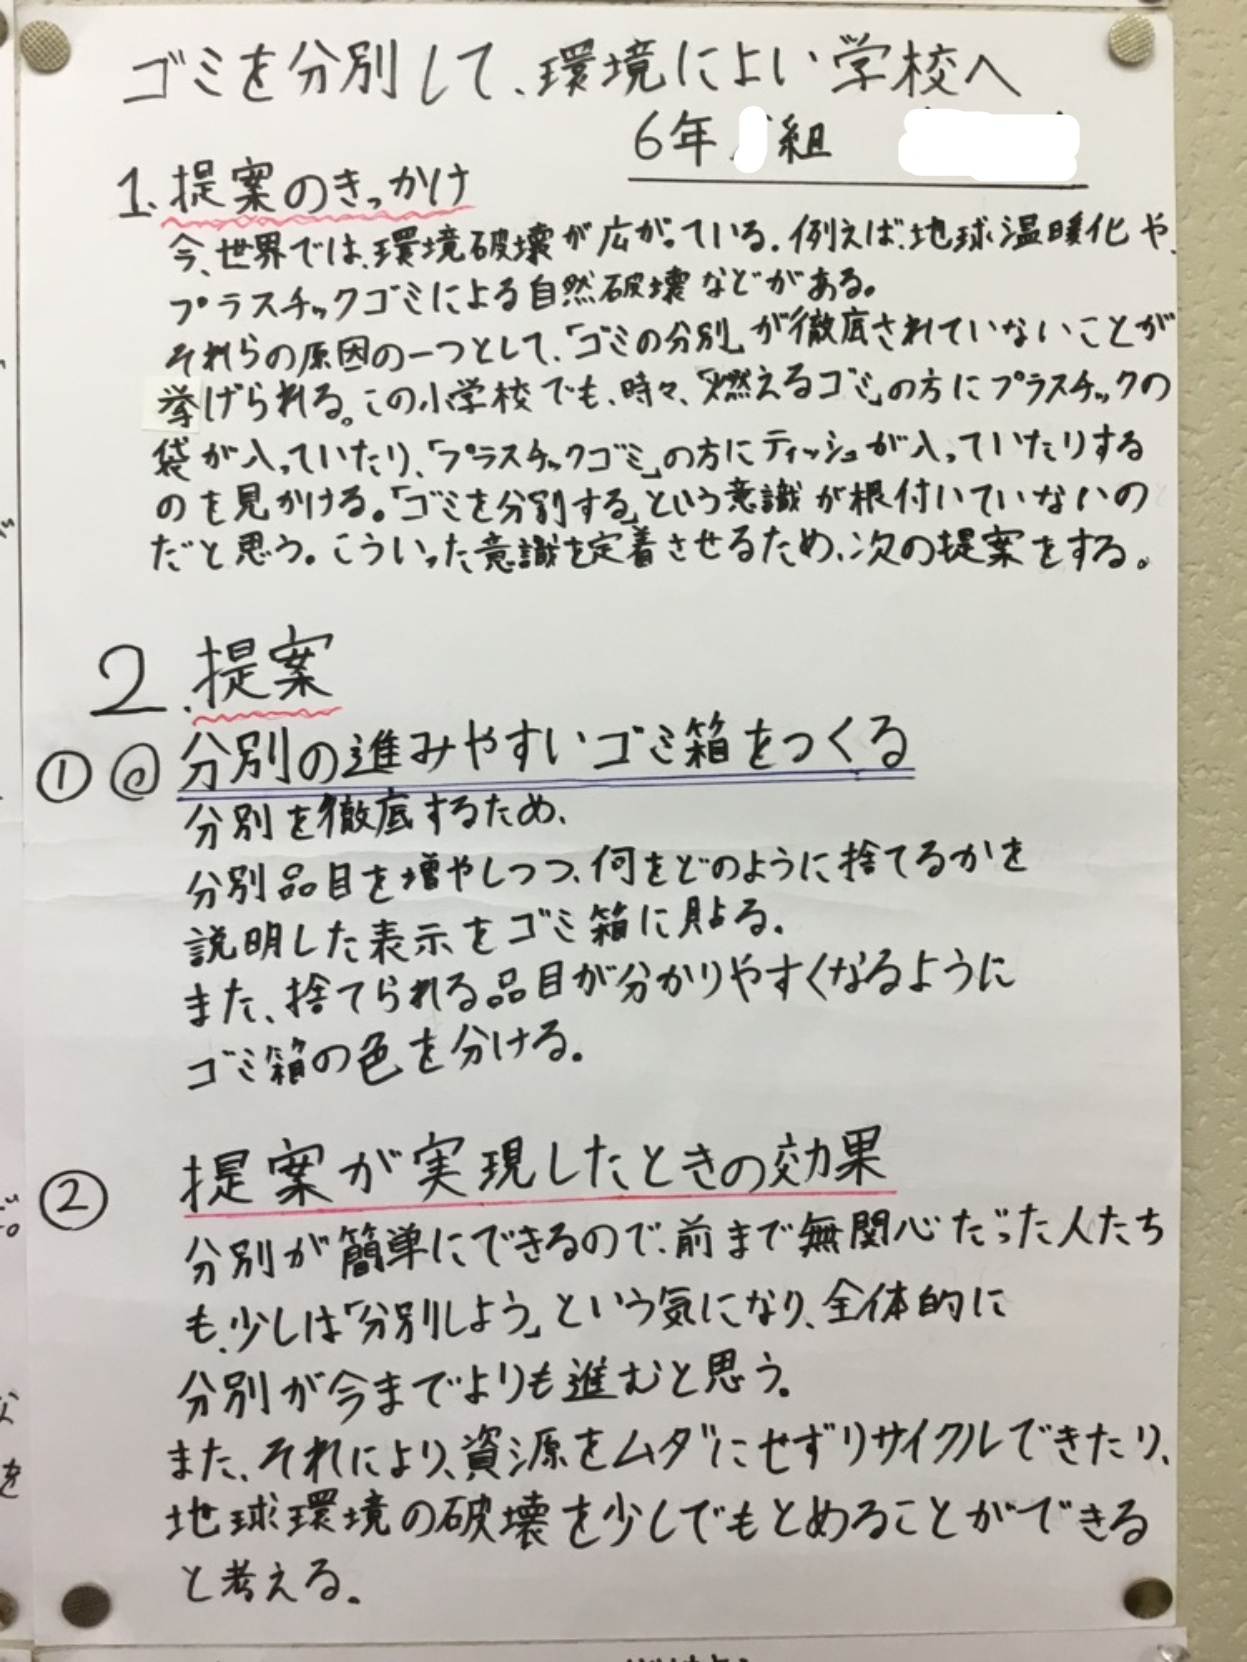 ゴミを分別して、環境によい学校へ
6年 組
1.提案のきっかけ
今、世界では、環境破壊が広がっている。例えば、地球温暖化や、
プラスチックゴミによる自然破壊などがある。
それらの原因の一つとして、「ゴミの分別」が徹底されていないことが
挙げられる。この小学校でも、時々、「燃えるゴミ」の方にプラスチックの
袋が入っていたり、「プラスチックゴミ」の方にティッシュが入っていたりする
のを見かける。「ゴミを分別する」という意識が根付いていないの
だと思う。こういった意識を定着させるため、次の提案をする。
2.提案
① @ 分別の進みやすいゴミ箱をつくる
分別を徹底するため、
分別品目を増やしつつ、何をどのように捨てるかを
説明した表示をゴミ箱に貼る。
また、捨てられる品目が分かりやすくなるように
ゴミ箱の色を分ける。
② 提案が実現したときの効果
分別が簡単にできるので、前まで無関心だった人たち
も、少しは「分別しよう」という気になり、全体的に
分別が今までよりも進むと思う。
また、それにより、資源をムダにせずリサイクルできたり、
地球環境の破壊を少しでもとめることができる
と考える。